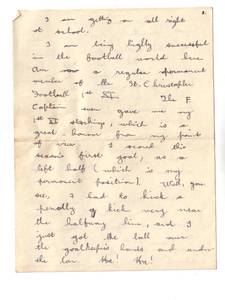 2.
I am getting on all right
at school.
I am being highly successful
in the football world here.
Am now a regular permanent
member of the St. Christopher
Football 1st XI. The F
Captain even gave me my
1st XI stockings, which is a
great honour from my point
of view. I scored this
season's first goal, as a
left half (which is my
permanent position). Well, you
see, I had to kick a
penalty kick very near
the halfway line, and I
just got the ball over
the goalkeeper's hands and under
the bar. Ha! Ha!